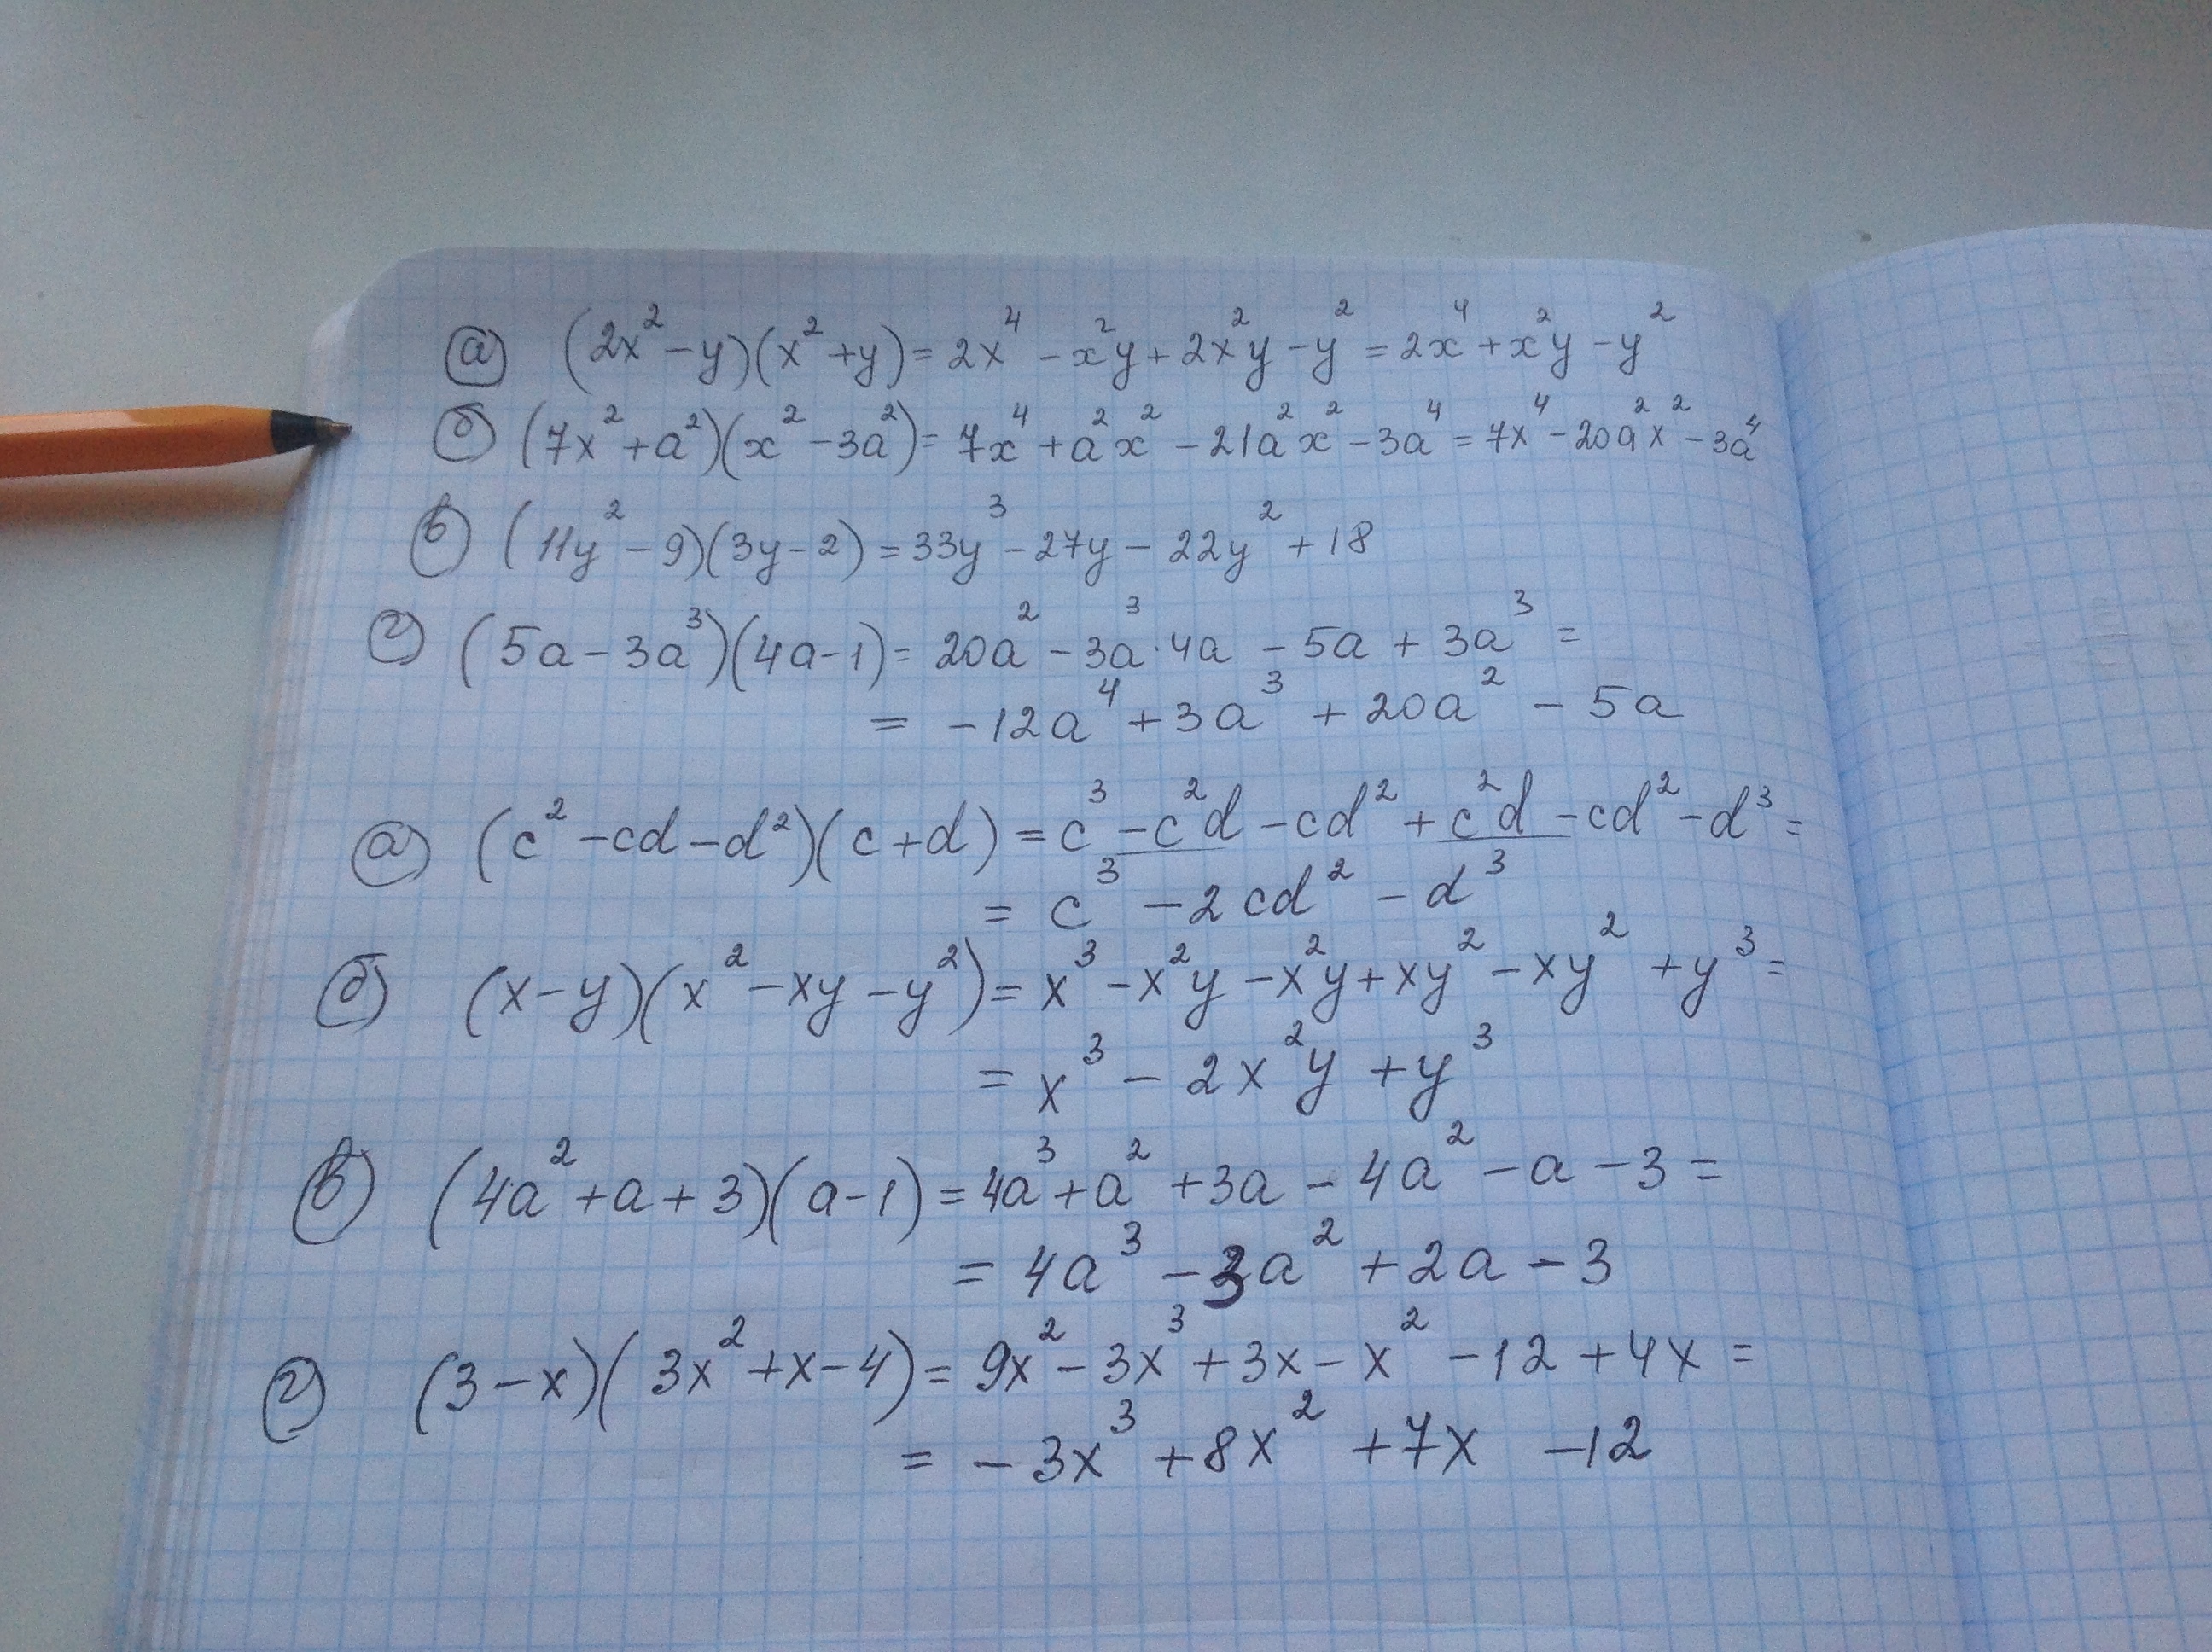 а) (2x² - y)(x² + y) = 2x⁴ - x²y + 2x²y - y² = 2x⁴ + x²y - y²
б) (7x² + a²)(x² - 3a²) = 7x⁴ + a²x² - 21a²x² - 3a⁴ = 7x⁴ - 20a²x² - 3a⁴
в) (11y² - 9)(3y - 2) = 33y³ - 27y - 22y² + 18
г) (5a - 3a³)(4a - 1) = 20a² - 3a³·4a - 5a + 3a³ =
= -12a⁴ + 3a³ + 20a² - 5a
а) (c² - cd - d²)(c + d) = c³ - c²d - cd² + c²d - cd² - d³ =
= c³ - 2cd² - d³
б) (x - y)(x² - xy - y²) = x³ - x²y - x²y + xy² - xy² + y³ =
= x³ - 2x²y + y³
в) (4a² + a + 3)(a - 1) = 4a³ + a² + 3a - 4a² - a - 3 =
= 4a³ - 3a² + 2a - 3
г) (3 - x)(3x² + x - 4) = 9x² - 3x³ + 3x - x² - 12 + 4x =
= -3x³ + 8x² + 7x - 12